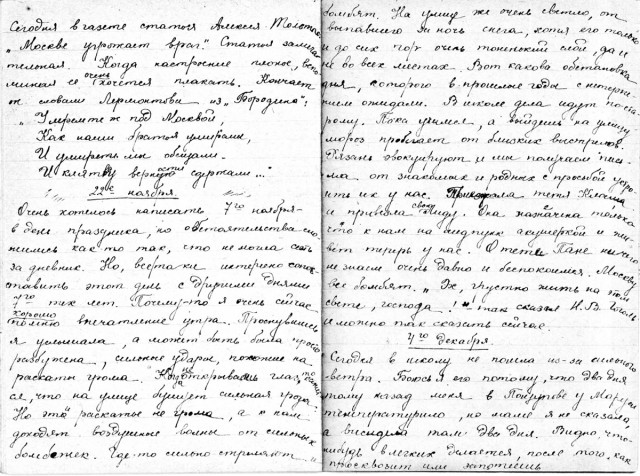 Сегодня в газете статья Алексея Толстого
„Москве угрожает враг." Статья замеча-
тельная. Когда настроение плохое, вспо-
миная ее очень хочется плакать. Кончает
он словами Лермонтова из „Бородино":
„Умремте ж под Москвой,
Как наши братья умирали,
И умереть мы обещали.
И клятву верности сдержали..."
22е ноября.
Очень хотелось написать 7го ноября -
в день праздника, но обстоятельства сло-
жились как-то так, что не могла сесть
за дневник. Но, все-таки интересно сопос-
ставить этот день с другими днями
7го тих лет. Почему-то я очень сейчас
хорошо помню впечатление утра. Проснувшись
я услышала, а может быть была просто
разбужена, сильные удары, похожие на
раскаты грома. Когда открываешь глаза,
ся, что на улице бушует сильная гроза.
Но это раскаты не грома, а к нам
доходят воздушные волны от сильных
бомбежек. Где-то сильно стреляют и
бомбят. На улице же очень светло, от
выпавшего за ночь снега, хотя его только
и до сих пор очень тоненький слой, да и
не во всех местах. Вот какова обстановка
дня, которого в прошлые годы с нетерпе-
нием ожидали. В школе дела идут по-ста-
рому. Пока учимся, а выйдешь на улицу
мороз пробегает от близких выстрелов.
Рязань эвакуируют и мы получаем пись-
ма от знакомых и родных с просьбой устро-
ить их у нас. Приехала тетя Клавдия
и привезла свою Лиду. Она назначена только
что к нам на медпункт акушеркой и жи-
вет теперь у нас. О тете Пане ничего
не знаем очень давно и беспокоимся. Москву
все бомбят. „Эх, грустно жить на том
свете, господа!" - так сказал Н.В. Гоголь
и можно так сказать сейчас.
4го декабря.
Сегодня в школу не пошла из-за сильного
ветра. Боюсь я его потому, что два дня
тому назад меня в у Маруси
температурило, но маме я не сказала,
а высидела там два дня. Видно, что-
нибудь в легких делается, после того, как
просквозит или запотеешь